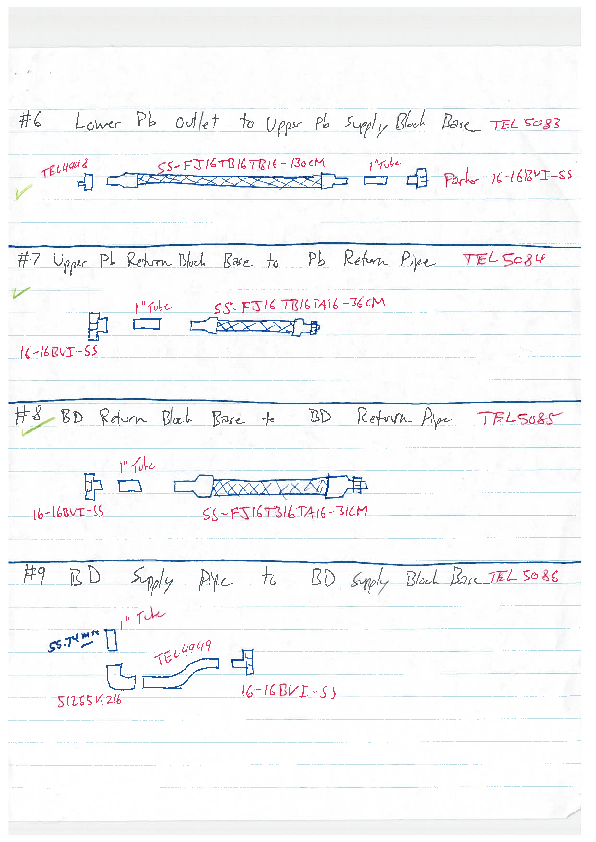 #6 Lower Pb Outlet to Upper Pb Supply Block Base TEL 5083
TEL4948
SS-FJ16TB16TB16-130CM
1" Tube
Parker 16-16BVI-SS
#7 Upper Pb Return Block Base to Pb Return Pipe TEL 5084
1" Tube
SS-FJ16TB16TA16-36CM
16-16BVI-SS
#8 BD Return Block Base to BD Return Pipe TEL 5085
1" Tube
16-16BVI-SS
SS-FJ16TB16TA16-31CM
#9 BD Supply Pipe to BD Supply Block Base TEL 5086
1" Tube
55.74mm
TEL4949
16-16BVI-SS